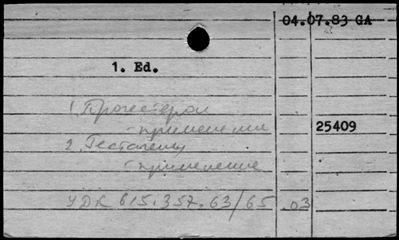 04.07.83 GA
1. Ed.
1. Прогестерон
- применение
25409
2. Гестагены
- применение
УДК 615.357.63/65 .03